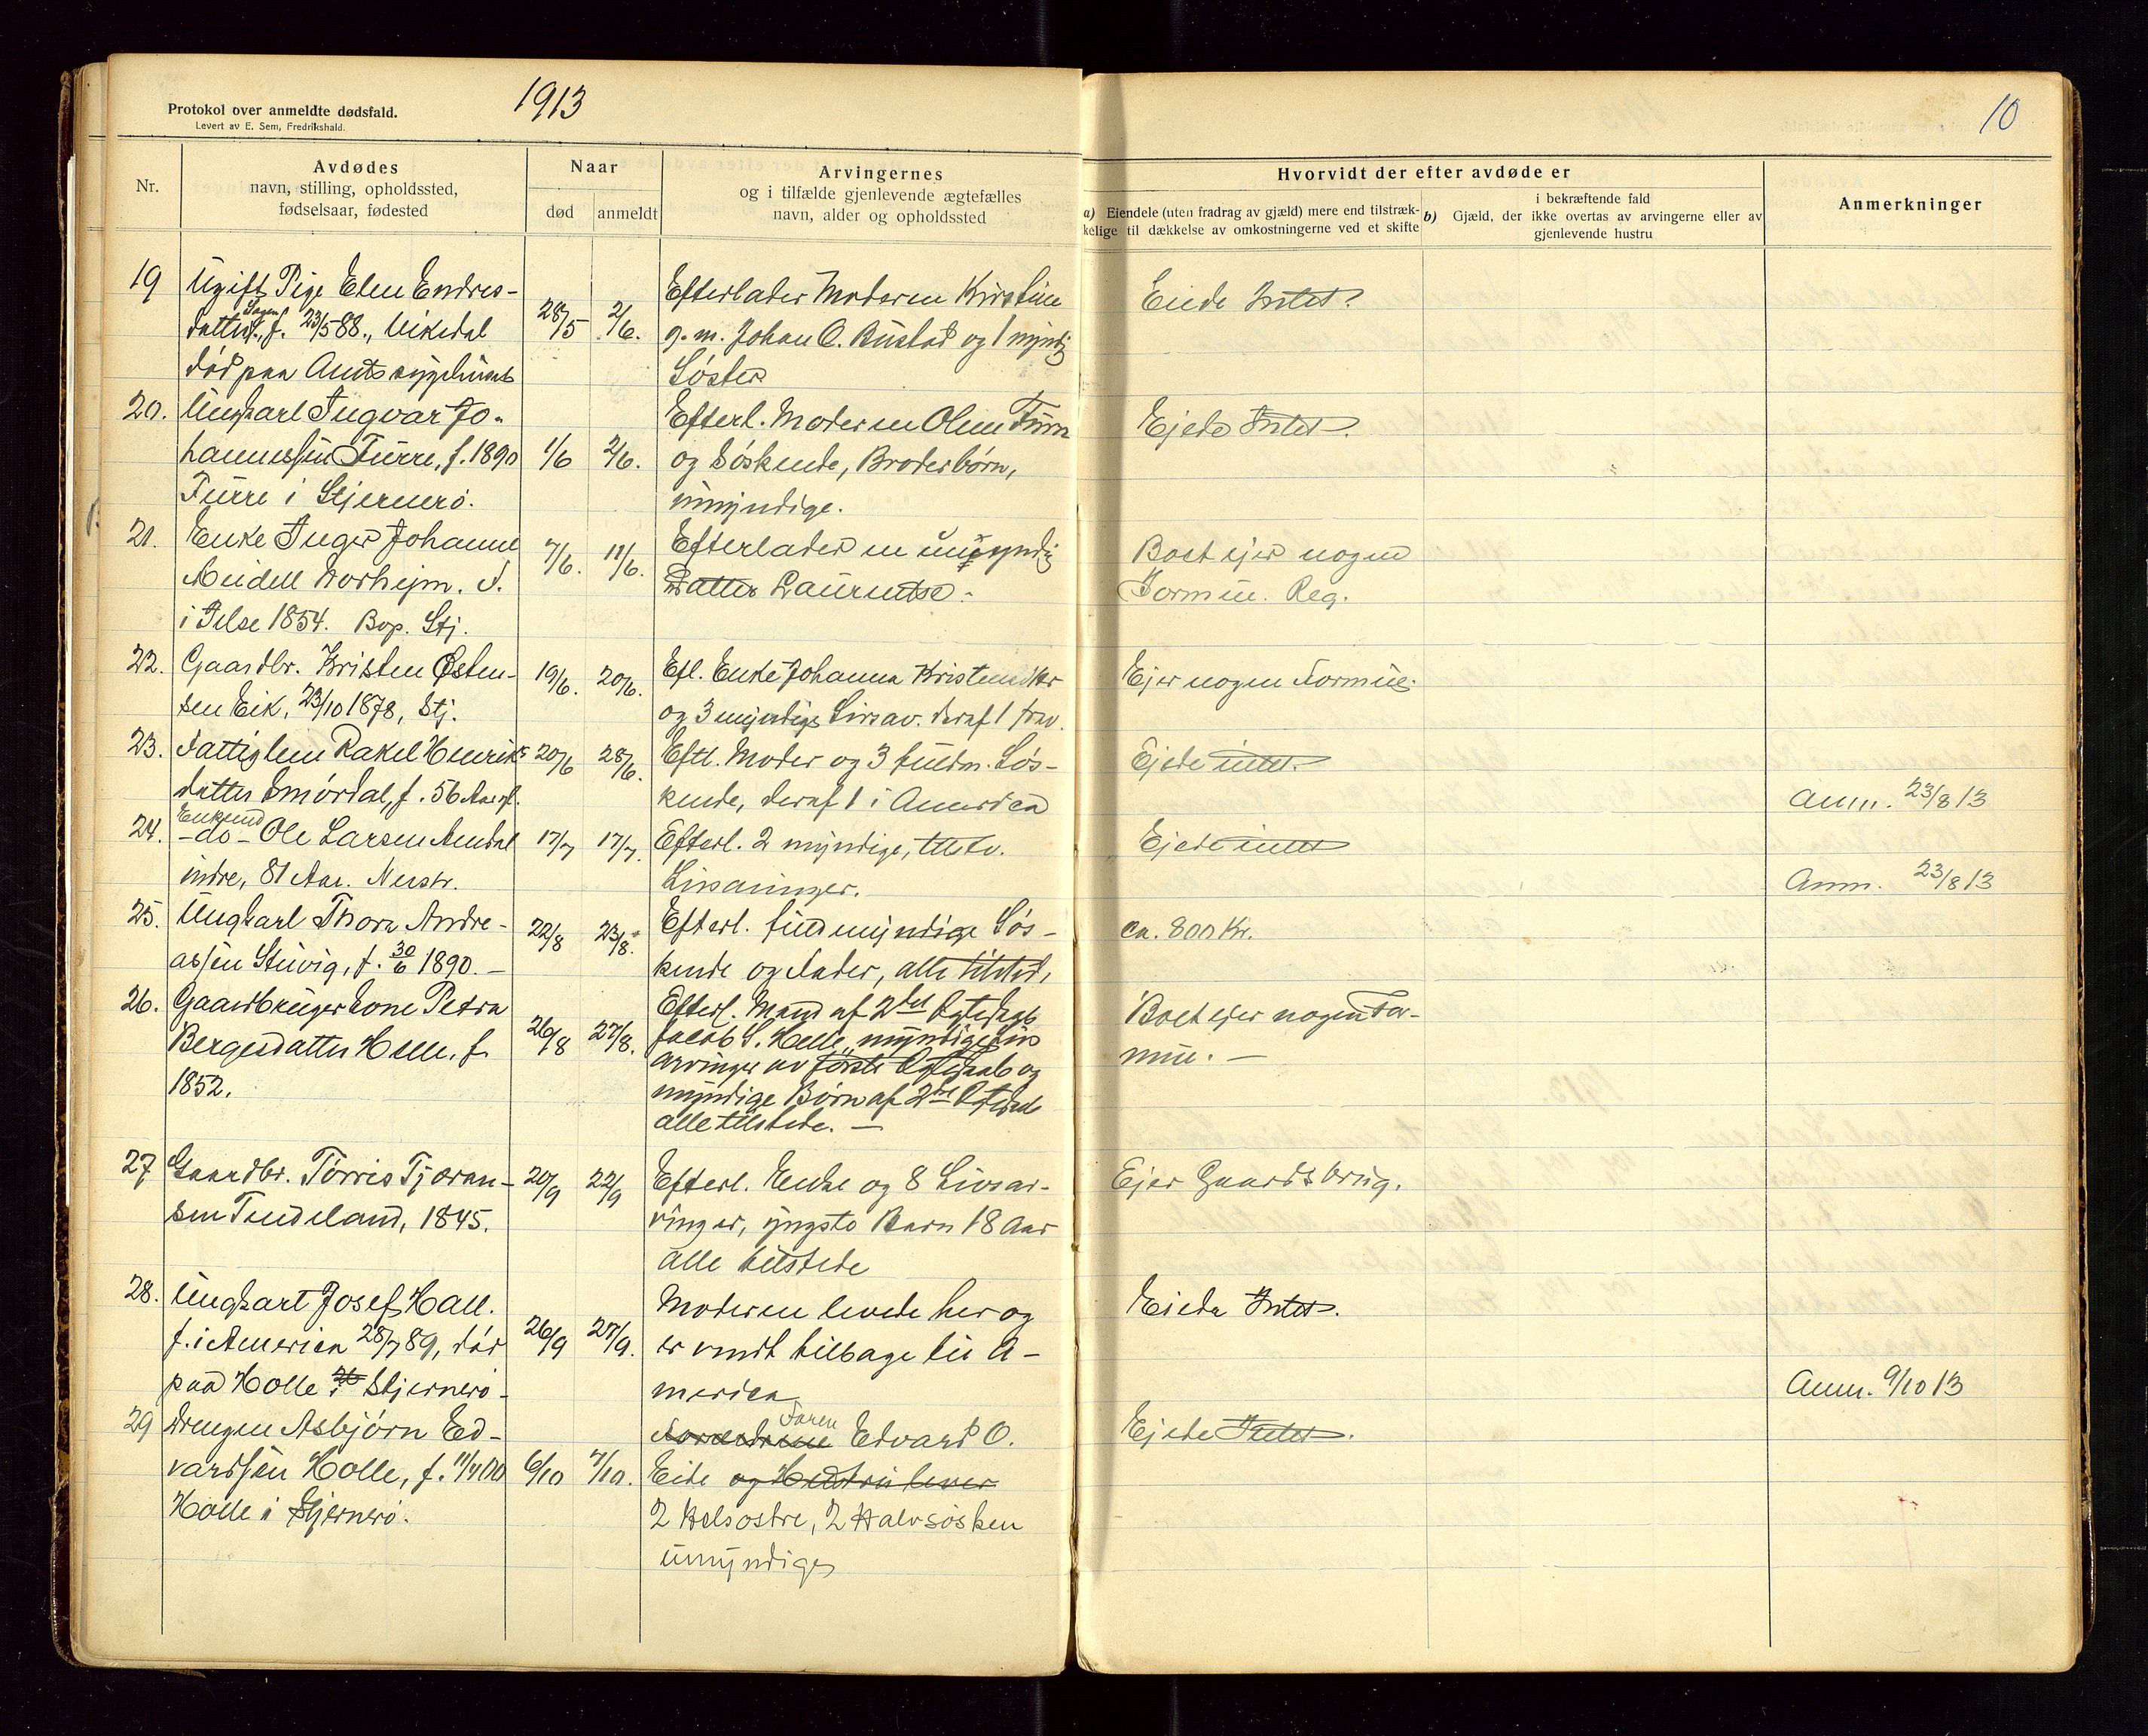 Protokol over anmeldte dødsfald.
Levert av E. Sem, Fredrikshald.
1913
10
Nr.
Avdødes
navn, stilling, opholdssted,
fødselsaar, fødested
Naar
død
anmeldt
Arvingernes
og i tilfælde gjenlevende ægtefælles
navn, alder og opholdssted
Hvorvidt der efter avdøde er
a) Eiendele (uten fradrag av gjæld) mere end tilstræk-
kelige til dækkelse av omkostningerne ved et skifte
i bekræftende fald
b) Gjæld, der ikke overtas av arvingerne eller av
gjenlevende hustru
Anmerkninger
19 Ugift Pige Elen Endres-
datter, f. 23/5 88., Vikedal
død paa Amtssygehuset
28/5 2/6.
Efterlader Moderen Kirstine
g. m. Johan O. Bustad og 1 myndig
Søster
Eiede Intet.
20. Ungkarl Ingvar Jo-
hannessen Furre, f. 1890
Furre i Stjernerø.
1/6 2/6.
Efterl. Moderen Olene Furre
og Søskende, Broderbørn,
umyndige.
Ejede Intet.
21. Enke Inger Johanne
Meidell Norheim. F.
i Jelse 1854. Bop. Stj.
7/6. 11/6.
Efterlader en umyndig
Datter Laurentse.
Boet ejer nogen
Formue. Reg.
22. Gaardbr. Kristen Østen-
sen Eik, 23/10 1878, Stj.
19/6. 20/6.
Efl. Enke Johanna
og 3 myndige Livsarv. deraf 1
Ejer nogen Formue.
23. Fattiglem Rakel Henriks
datter Smørdal, f. 56 Aar gl.
20/6 28/6.
Eftl. Moder og 3 fuldm. Søs-
kende, deraf 1 i America
Ejede intet.
Anm. 23/8 13
24. Enkemd
-do- Ole Larsen Amdal
indre, 81 Aar. Nerstr.
17/7 17/7.
Efterl. 2 myndige, tilstv.
Livsarvinger.
Ejede intet
Anm. 23/8 13
25. Ungkarl Thore Andre-
assen Stuvig, f. 30/6 1890. –
22/8 23/8.
Efterl. fuldmyndige Søs-
kende og Fader, alle tilsted.
ca. 800 Kr.
26. Gaardbrugerkone Petra
Bergesdatter Helle, f.
1852.
26/8 27/8.
Efterl. Mand af 2det Ægteskab
Jacob S. Helle, myndige Livs
arvinger av første Ægteskab og
myndige Børn af 2det Ægteskab
alle tilstede. –
Boet ejer nogen For-
mue. –
27 Gaardbr. Torris Tjeran-
sen Tendeland, 1845.
20/9 22/9
Efterl. Enke og 8 Livsar-
vinger, yngste Barn 18 Aar
alle tilstede
Ejer Gaardsbrug.
28. Ungkarl Josef Hall.
f. i America 28/7 89, død
paa Holle i Stjernerø.
26/9 27/9.
Moderen levede her og
er vendt tilbage til A-
merica
Eiede Intet.
Anm. 9/10 13
29 Drengen Asbjørn Ed-
vardsen Holle, f. 11/4 00
Holle i Stjernerø.
6/10 7/10.
Faren
Forældrene Edvard O.
Eide og Hustru lever
2 Helsøstre, 2 Halvsøsken
umyndige
Ejede Intet.